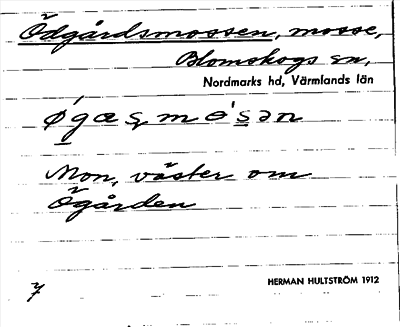 Ödgårdsmossen, mosse,
Blomskogs sn,
Nordmarks hd, Värmlands län
Mon, väster om
Ögården
HERMAN HULTSTRÖM 1912